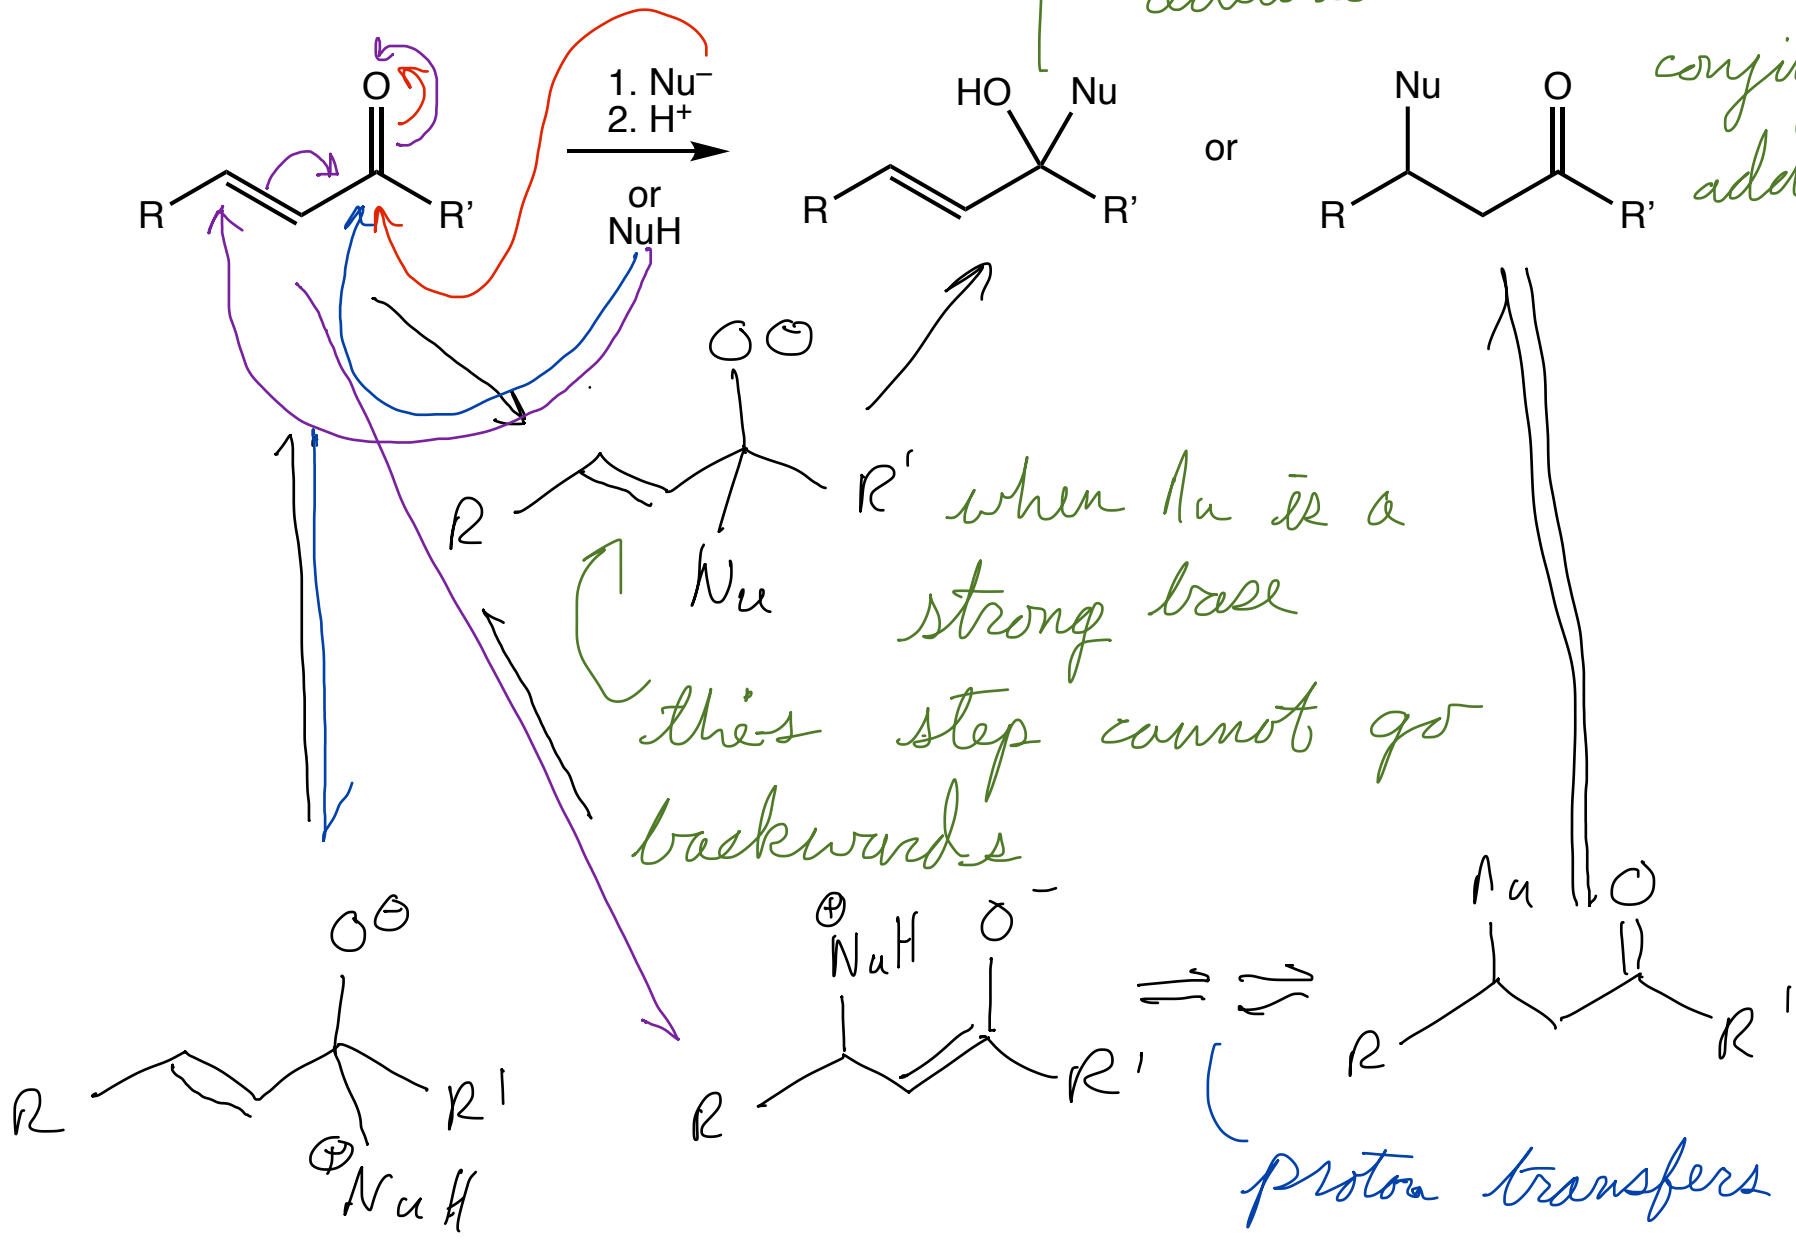 O
1. Nu⁻
2. H⁺
or
NuH
R
R'
HO
Nu
R
R'
or
Nu
O
R
R'
O ⊖
R
R'
Nu
when Nu is a
strong base
this step cannot go
backwards
O ⊖
R
R'
⊕
NuH
⊕
NuH
O⁻
R
R'
Nu
O
R
R'
proton transfers